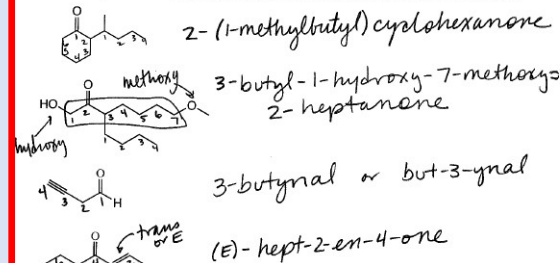 O
1 2 3 4 5
1 2 3 4
2-(1-methylbutyl)cyclohexanone
methoxy
HO
O
O
1 2 3 4 5 6 7
1 2 3 4
hydroxy
3-butyl-1-hydroxy-7-methoxy=
2-heptanone
O
4 3 2 1 H
3-butynal or but-3-ynal
O
trans
or E
(E)-hept-2-en-4-one